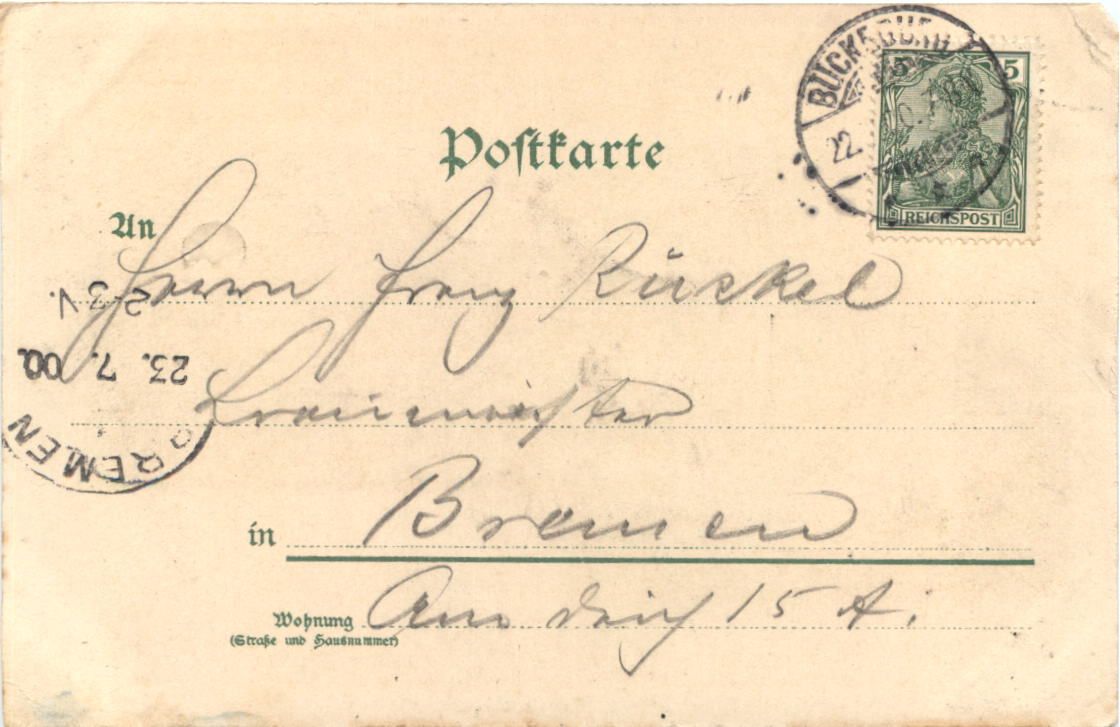 Postkarte
BÜCKEBURG
22.
5 5
REICHSPOST
An
Herrn Franz Rückel
Braumeister
in Bremen
Wohnung Am Deich 15 A.
(Straße und Hausnummer)
BREMEN
23. 7. 00.
2-3 V.